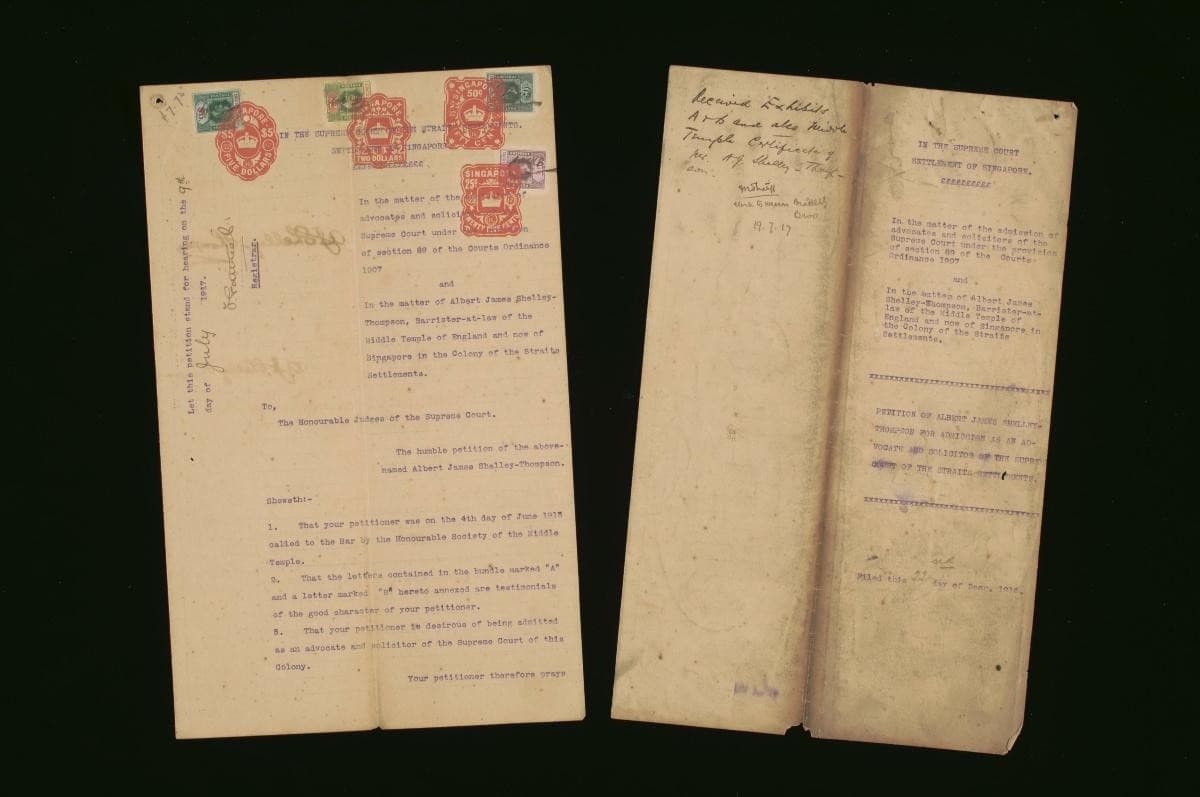 17.7
SINGAPORE
$5 $5
FIVE DOLLARS
TWO DOLLARS
SINGAPORE
50C
SINGAPORE
25C
IN THE SUPREME COURT OF THE STRAITS SETTLEMENTS.
SETTLEMENT OF SINGAPORE
Let this petition stand for hearing on the 9th
day of July 1917.
Registrar.
In the matter of the
advocates and solici
Supreme Court under
of section 89 of the Courts Ordinance
1907
and
In the matter of Albert James Shelley-
Thompson, Barrister-at-law of the
Middle Temple of England and now of
Singapore in the Colony of the Straits
Settlements.
To,
The Honourable Judges of the Supreme Court.
The humble petition of the above-
named Albert James Shelley-Thompson.
Showeth:-
1. That your petitioner was on the 4th day of June 1913
called to the Bar by the Honourable Society of the Middle
Temple.
2. That the letters contained in the bundle marked "A"
and a letter marked "B" hereto annexed are testimonials
of the good character of your petitioner.
3. That your petitioner is desirous of being admitted
as an advocate and solicitor of the Supreme Court of this
Colony.
Your petitioner therefore prays
Received Exhibits
A & B and also Middle
Temple Certificate of
Mr. A J Shelley-Thomp-
son.
19.7.17
IN THE SUPREME COURT
SETTLEMENT OF SINGAPORE.
In the matter of the admission of
advocates and solicitors of the
Supreme Court under the provision
of section 89 of the Courts
Ordinance 1907
and
In the matter of Albert James
Shelley-Thompson, Barrister-at-
law of the Middle Temple of
England and now of Singapore in
the Colony of the Straits
Settlements.
xxxxxxxxxxxxxxxxxxxxxxxxxxxxxxxxx
PETITION OF ALBERT JAMES SHELLEY-
THOMPSON FOR ADMISSION AS AN AD-
VOCATE AND SOLICITOR OF THE SUPRE
COURT OF THE STRAITS SETTLEMENTS.
xxxxxxxxxxxxxxxxxxxxxxxxxxxxxxxxx
Filed this 22nd day of Decr. 1916.